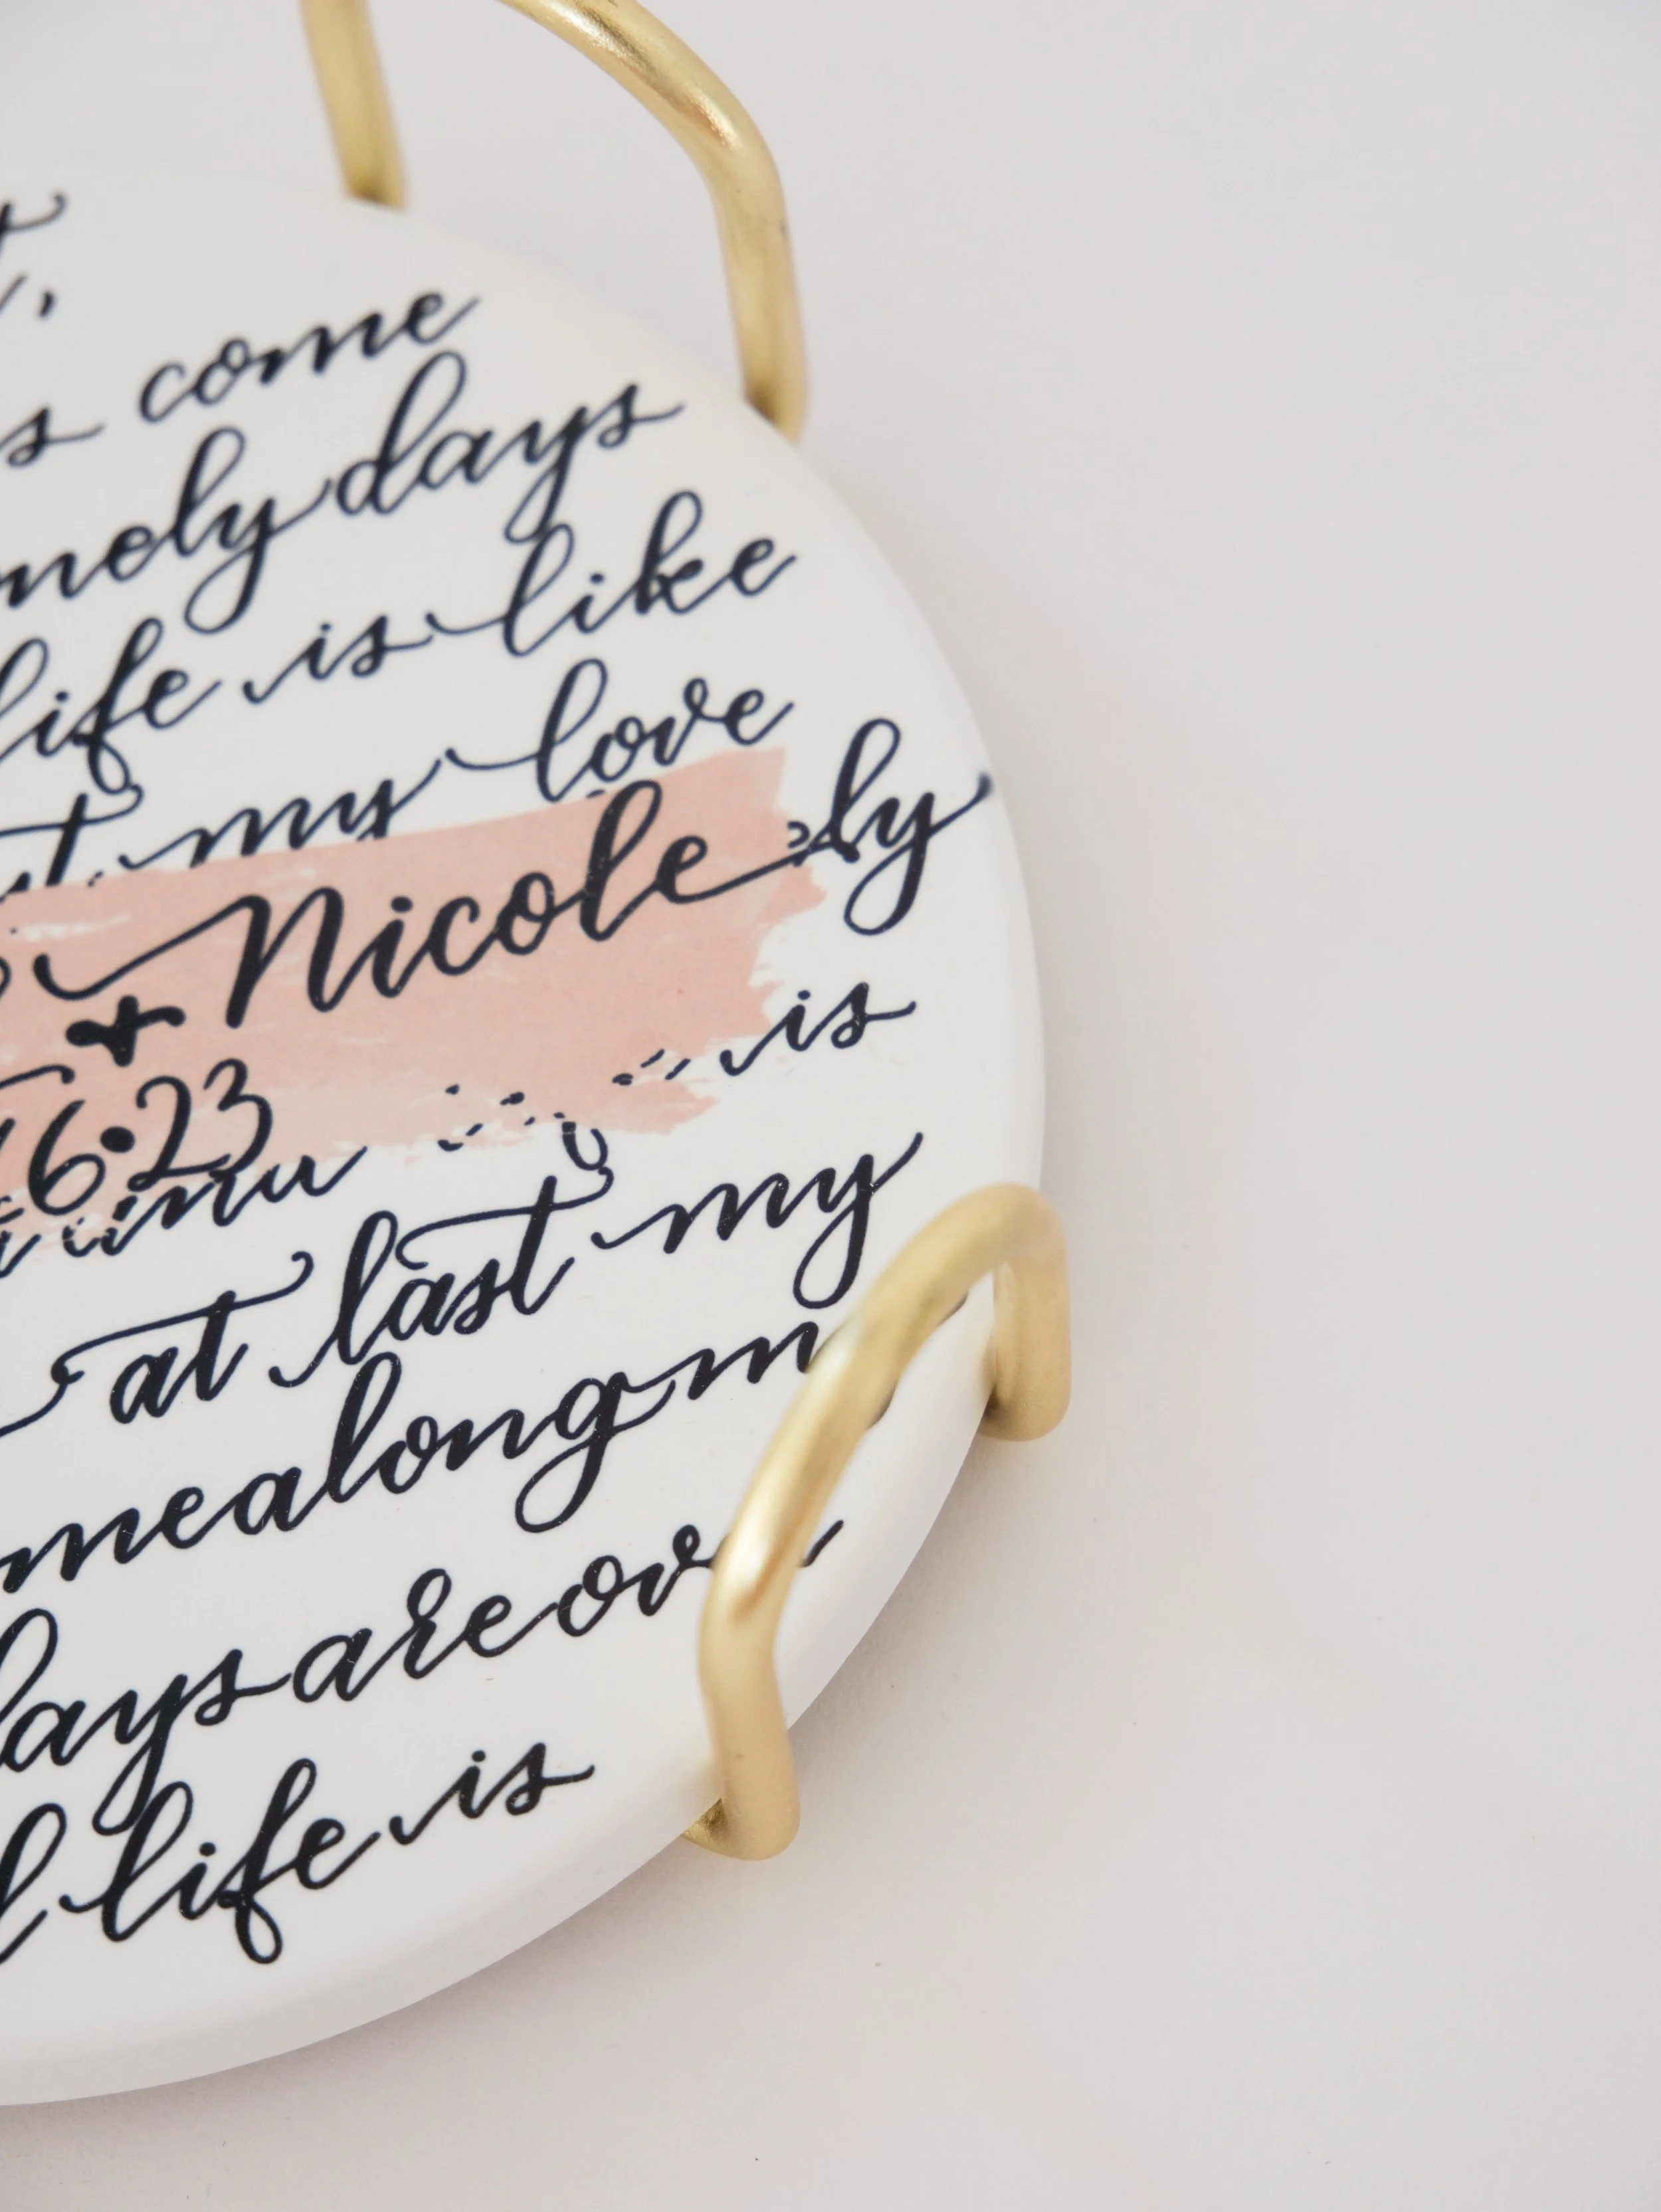 s come
nely days
life is like
my love
Nicole ly
+
16.23
is
at last my
me along m
days are ove
life is